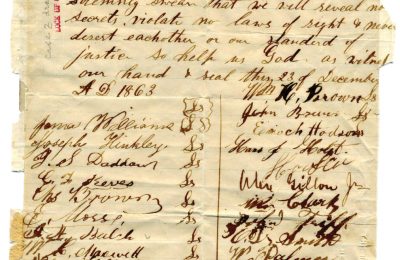 solemnly swear that we will reveal no
secrets, violate no laws of right & never
desert eachother or our standerd of
justice so help us God. as witnes
our hand & seal this 23 of December
A D 1863
James Williams Ls
Joseph Hinkley Ls
J. S. Daddow Ls
C. F. Reeves Ls
Chs Brown Ls
E. Morse Ls
Balch Ls
W. Maxwell Ls
Wm H. Brown Ls
John Brown Ls
Enoch Hodson
Hans of Holst
Alex Gillon Jr
Wm Clark
Smith
W. Palmer